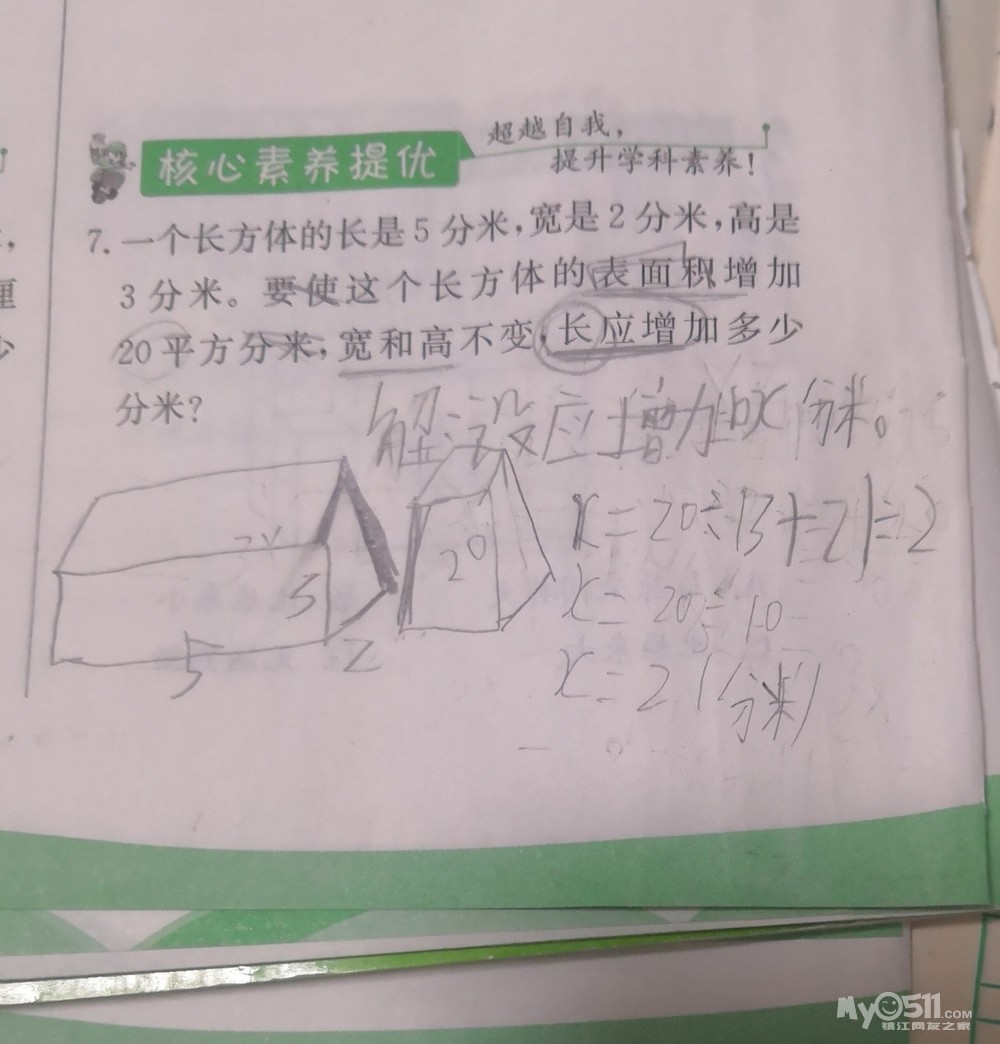 超越自我，
提升学科素养！
核心素养提优
7. 一个长方体的长是5分米，宽是2分米，高是
3分米。要使这个长方体的表面积增加
20平方分米，宽和高不变，长应增加多少
分米？
解：设应增加x分米。
x=20÷(3+2)÷2
x=20÷10
x=2(分米)
20
3
5
2
厘
少
My0511.COM
镇江网友之家